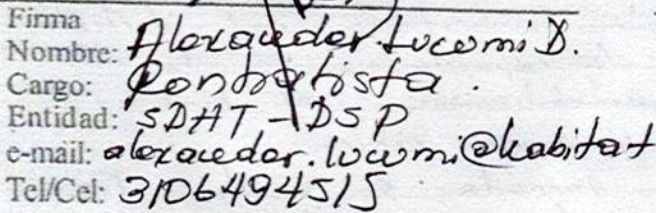 Firma
Nombre: Alexander Lucumi D.
Cargo: Contratista.
Entidad: SDHT - DSP
e-mail: alexander.lucumi@habitat
Tel/Cel: 3106494515